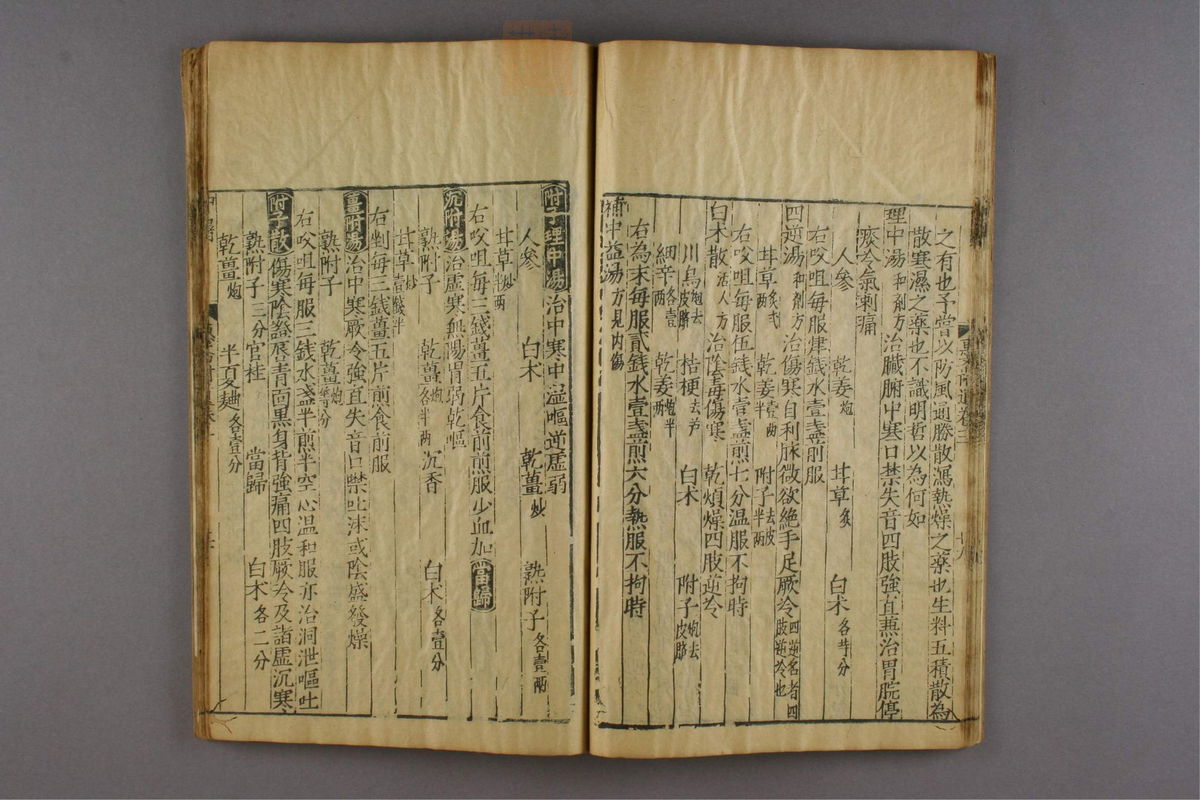 之有也予嘗以防風通勝散瀉熱燥之藥也生料五積散為
散寒濕之藥也不識明哲以為何如
理中湯和劑方治臟腑中寒口禁失音四肢強直兼治胃脘停
痰冷氣刺痛
人參 乾姜炮 甘草炙 白朮各等分
右㕮咀每服肆錢水壹盞煎服
四逆湯和劑方治傷寒自利脉微欲絶手足厥冷四逆名者四肢逆冷也
甘草炙弍兩 乾姜壹兩 附子去皮半兩
右㕮咀每服伍錢水壹盞煎七分温服不拘時
白朮散活人方治陰毒傷寒 乾煩燥四肢逆冷
川烏炮去皮臍 桔梗去芦 白朮 附子炮去皮臍
細辛各壹兩 乾姜炮半兩
右為末每服貳錢水壹盞煎六分熱服不拘時
補中益湯方見内傷
附子理中湯治中寒中濕嘔逆虛弱
人參 白朮 乾薑炒 熟附子各壹兩
甘草炒兩
右㕮咀每三錢薑五片食前煎服少血加當歸
沉附湯治虛寒無陽胃弱乾嘔
熟附子 乾薑炮各半兩 沉香 白朮各壹分
甘草炒壹錢半
右剉每三錢薑五片煎食前服
薑附湯治中寒厥冷強直失音口禁吐沫或陰盛發燥
熟附子 乾薑炮等分
右㕮咀每服三錢水盞半煎半空心温和服亦治洞泄嘔吐
附子散傷寒陰證唇青面黑身背強痛四肢厥冷及諸虛沉寒
熟附子三分 官桂 當歸 白朮各二分
乾薑炮 半夏麯各壹分